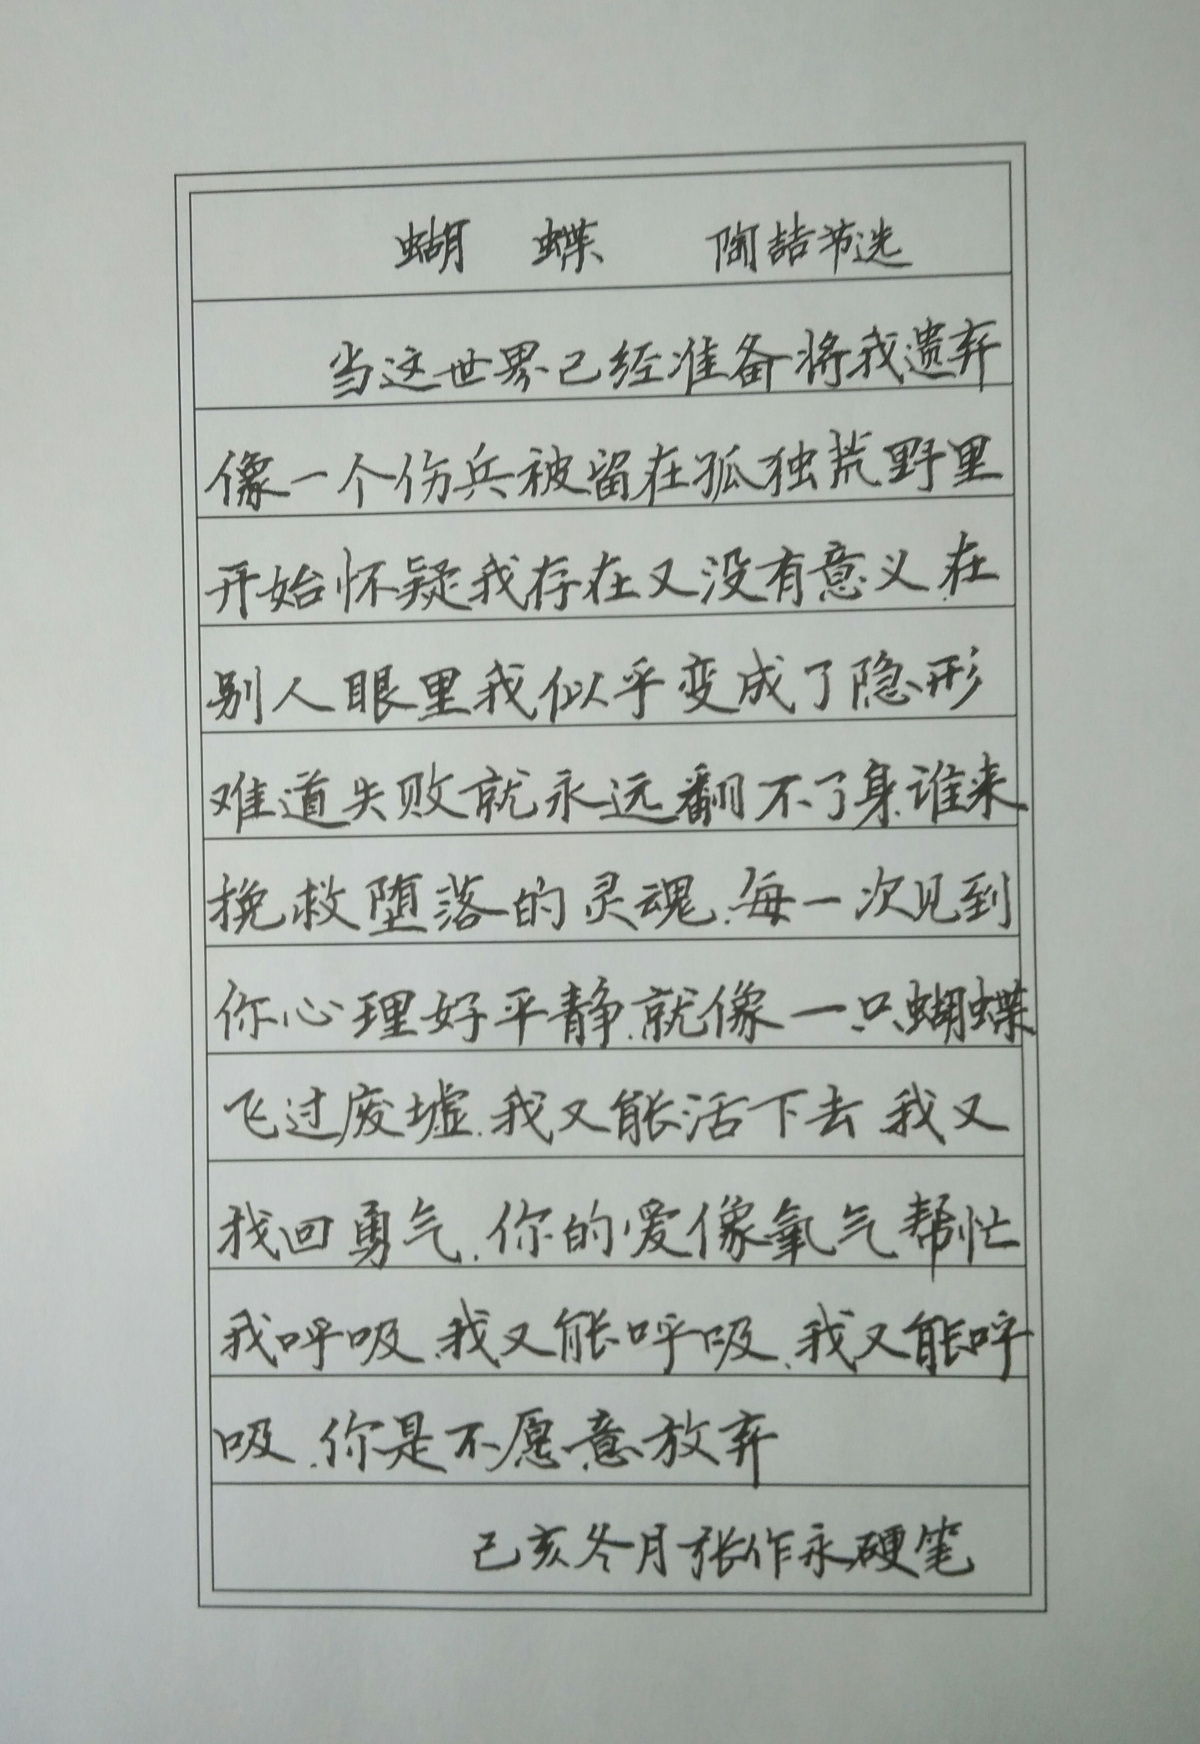 蝴 蝶 陶喆节选
当这世界已经准备将我遗弃
像一个伤兵被留在孤独荒野里
开始怀疑我存在又没有意义.在
别人眼里我似乎变成了隐形
难道失败就永远翻不了身.谁来
挽救堕落的灵魂.每一次见到
你心理好平静.就像一只蝴蝶
飞过废墟.我又能活下去 我又
找回勇气.你的爱像氧气帮忙
我呼吸.我又能呼吸.我又能呼
吸.你是不愿意放弃
己亥冬月张作永硬笔